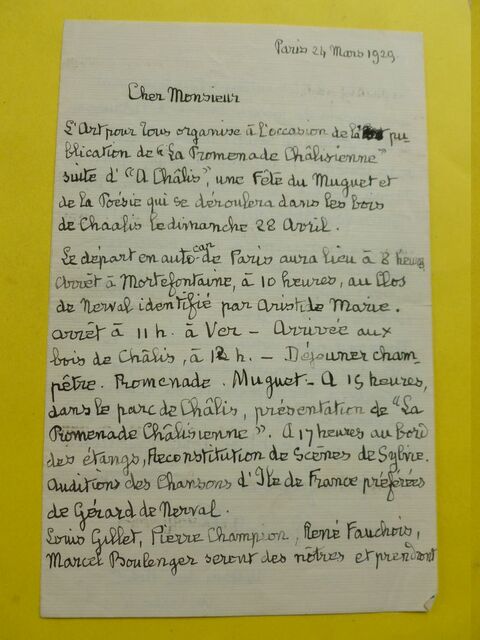 Paris 24 Mars 1929
Cher Monsieur
L'Art pour Tous organise à l'occasion de la pu-
blication de "La Promenade Châlisienne"
suite d' "A Châlis", une Fête du Muguet et
de la Poésie qui se déroulera dans les bois
de Chaalis le dimanche 28 Avril.
Le départ en autocar de Paris aura lieu à 8 heures
arrêt à Mortefontaine, à 10 heures, au Clos
de Nerval identifié par Aristide Marie.
arrêt à 11 h. à Ver - Arrivée aux
bois de Châlis, à 12 h. - Déjeuner cham-
pêtre. Promenade. Muguet - A 15 heures,
dans le parc de Châlis, présentation de "La
Promenade Châlisienne". A 17 heures au bord
des étangs, Reconstitution de Scènes de Sylvie.
Auditions des Chansons d'Ile de France préférées
de Gérard de Nerval.
Louis Gillet, Pierre Champion, René Fauchois,
Marcel Boulenger seront des nôtres et prendront